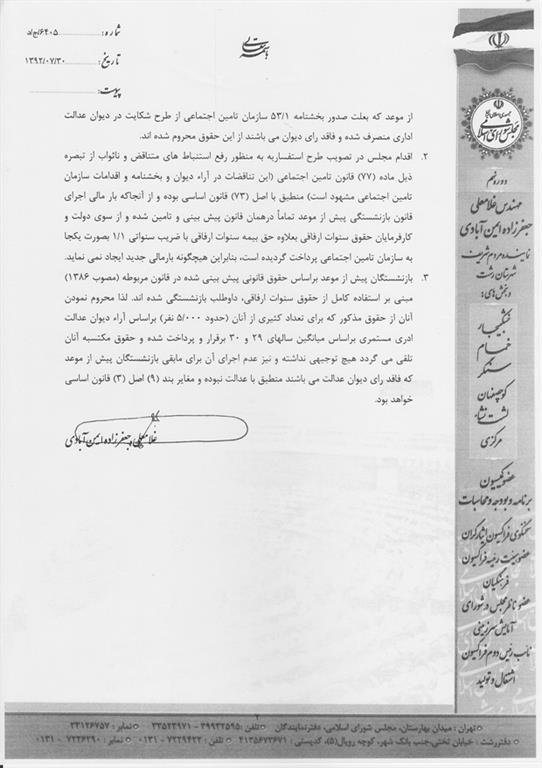 شماره: ۶۴۰۵/ج/د
تاریخ: ۱۳۹۲/۰۷/۳۰
پیوست:
باسمه تعالی
جمهوری اسلامی ایران
مجلس شورای اسلامی
دوره نهم
مهندس غلامعلی
جعفرزاده ایمن آبادی
نماینده مردم شریف
شهرستان رشت
و بخش های:
خشکبیجار
خمام
سنگر
کوچصفهان
لشت نشاء
مرکزی
عضو کمیسیون
برنامه و بودجه و محاسبات
سخنگوی فراکسیون ایثارگران
عضو هیئت رئیسه فراکسیون
فرهنگیان
عضو ناظر مجلس در شورای
آمایش سرزمینی
نائب رئیس دوم فراکسیون
اشتغال و تولید
از موعد که بعلت صدور بخشنامه ۵۳/۱ سازمان تامین اجتماعی از طرح شکایت در دیوان عدالت
اداری منصرف شده و فاقد رای دیوان می باشند از این حقوق محروم شده اند.
۲. اقدام مجلس در تصویب طرح استفساریه به منظور رفع استنباط های متناقض و ناثواب از تبصره
ذیل ماده (۷۷) قانون تامین اجتماعی (این تناقضات در آراء دیوان و بخشنامه و اقدامات سازمان
تامین اجتماعی مشهود است) منطبق با اصل (۷۳) قانون اساسی بوده و از آنجاکه بار مالی اجرای
قانون بازنشستگی پیش از موعد تماماً درهمان قانون پیش بینی و تامین شده و از سوی دولت و
کارفرمایان حقوق سنوات ارفاقی بعلاوه حق بیمه سنوات ارفاقی با ضریب سنواتی ۱/۱ بصورت یکجا
به سازمان تامین اجتماعی پرداخت گردیده است، بنابراین هیچگونه بارمالی جدید ایجاد نمی نماید.
۳. بازنشستگان پیش از موعد براساس حقوق قانونی پیش بینی شده در قانون مربوطه (مصوب ۱۳۸۶)
مبنی بر استفاده کامل از حقوق سنوات ارفاقی، داوطلب بازنشستگی شده اند. لذا محروم نمودن
آنان از حقوق مذکور که برای تعداد کثیری از آنان (حدود ۵/۰۰۰ نفر) براساس آراء دیوان عدالت
ادری مستمری براساس میانگین سالهای ۲۹ و ۳۰ برقرار و پرداخت شده و حقوق مکتسبه آنان
تلقی می گردد هیچ توجیهی نداشته و نیز عدم اجرای آن برای مابقی بازنشستگان پیش از موعد
که فاقد رای دیوان عدالت می باشند منطبق با عدالت نبوده و مغایر بند (۹) اصل (۳) قانون اساسی
خواهد بود.
غلامعلی جعفرزاده ایمن آبادی
تهران: میدان بهارستان، مجلس شورای اسلامی، دفترنمایندگان تلفن: ۳۹۹۳۲۵۹۵ - ۳۳۵۲۳۹۷۱ نمابر: ۳۳۱۲۶۷۵۷
دفتررشت: خیابان تختی،جنب بانک شهر، کوچه رویال(۵)، کدپستی: ۴۱۳۵۶۷۳۶۷۱ تلفن: ۷۲۲۹۴۲۲ - ۰۱۳۱ نمابر: ۷۲۲۶۲۹۰ - ۰۱۳۱